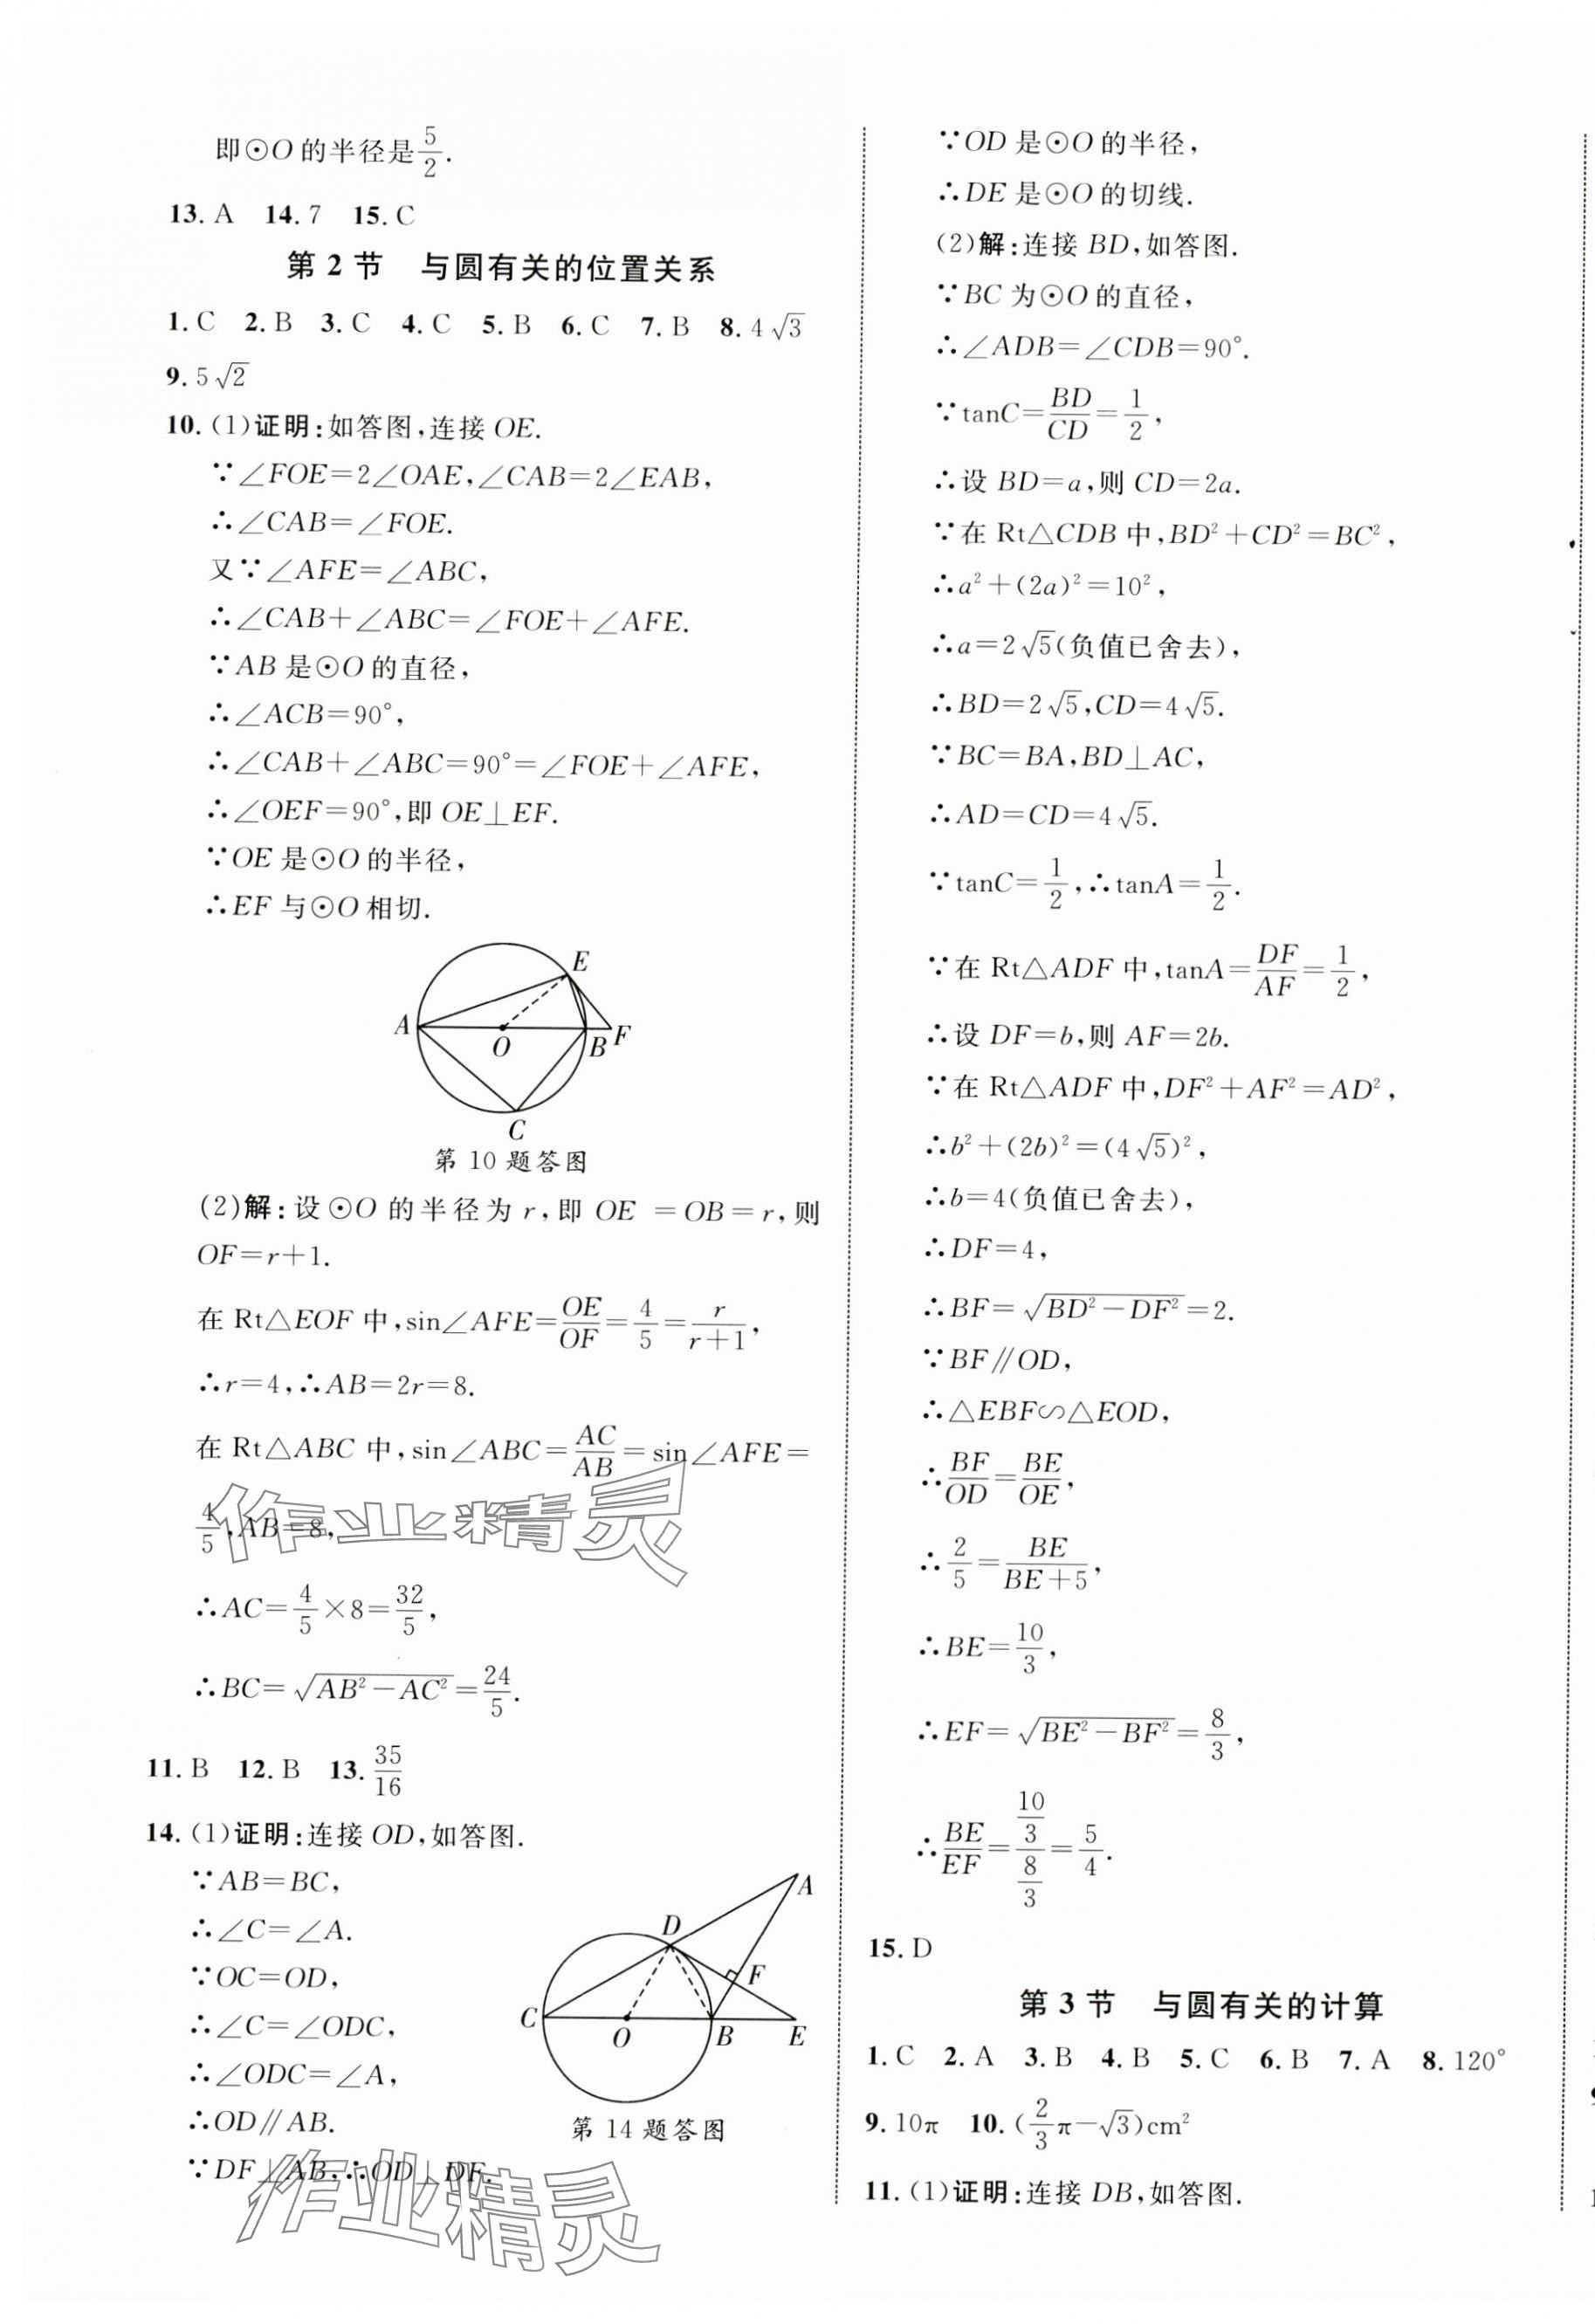 即⊙O的半径是5/2.
13. A  14. 7  15. C
第2节  与圆有关的位置关系
1. C  2. B  3. C  4. C  5. B  6. C  7. B  8. 4√3
9. 5√2
10. (1)证明:如答图,连接OE.
∵∠FOE=2∠OAE,∠CAB=2∠EAB,
∴∠CAB=∠FOE.
又∵∠AFE=∠ABC,
∴∠CAB+∠ABC=∠FOE+∠AFE.
∵AB是⊙O的直径,
∴∠ACB=90°,
∴∠CAB+∠ABC=90°=∠FOE+∠AFE,
∴∠OEF=90°,即OE⊥EF.
∵OE是⊙O的半径,
∴EF与⊙O相切.
E
A
O
B
F
C
第10题答图
(2)解:设⊙O的半径为r,即OE=OB=r,则
OF=r+1.
在Rt△EOF中,sin∠AFE=OE/OF=4/5=r/(r+1),
∴r=4,∴AB=2r=8.
在Rt△ABC中,sin∠ABC=AC/AB=sin∠AFE=
4/5,AB=8,
作业精灵
∴AC=4/5×8=32/5,
∴BC=√(AB²-AC²)=24/5.
11. B  12. B  13. 35/16
14. (1)证明:连接OD,如答图.
∵AB=BC,
∴∠C=∠A.
∵OC=OD,
∴∠C=∠ODC,
∴∠ODC=∠A,
∴OD∥AB.
∵DF⊥AB,∴OD⊥DF.
A
D
F
C
O
B
E
第14题答图
作业精灵
∵OD是⊙O的半径,
∴DE是⊙O的切线.
(2)解:连接BD,如答图.
∵BC为⊙O的直径,
∴∠ADB=∠CDB=90°.
∵tanC=BD/CD=1/2,
∴设BD=a,则CD=2a.
∵在Rt△CDB中,BD²+CD²=BC²,
∴a²+(2a)²=10²,
∴a=2√5(负值已舍去),
∴BD=2√5,CD=4√5.
∵BC=BA,BD⊥AC,
∴AD=CD=4√5.
∵tanC=1/2,∴tanA=1/2.
∵在Rt△ADF中,tanA=DF/AF=1/2,
∴设DF=b,则AF=2b.
∵在Rt△ADF中,DF²+AF²=AD²,
∴b²+(2b)²=(4√5)²,
∴b=4(负值已舍去),
∴DF=4,
∴BF=√(BD²-DF²)=2.
∵BF∥OD,
∴△EBF∽△EOD,
∴BF/OD=BE/OE,
∴2/5=BE/(BE+5),
∴BE=10/3,
∴EF=√(BE²-BF²)=8/3,
∴BE/EF=(10/3)/(8/3)=5/4.
15. D
第3节  与圆有关的计算
1. C  2. A  3. B  4. B  5. C  6. B  7. A  8. 120°
9. 10π  10. (2/3π-√3)cm²
11. (1)证明:连接DB,如答图.